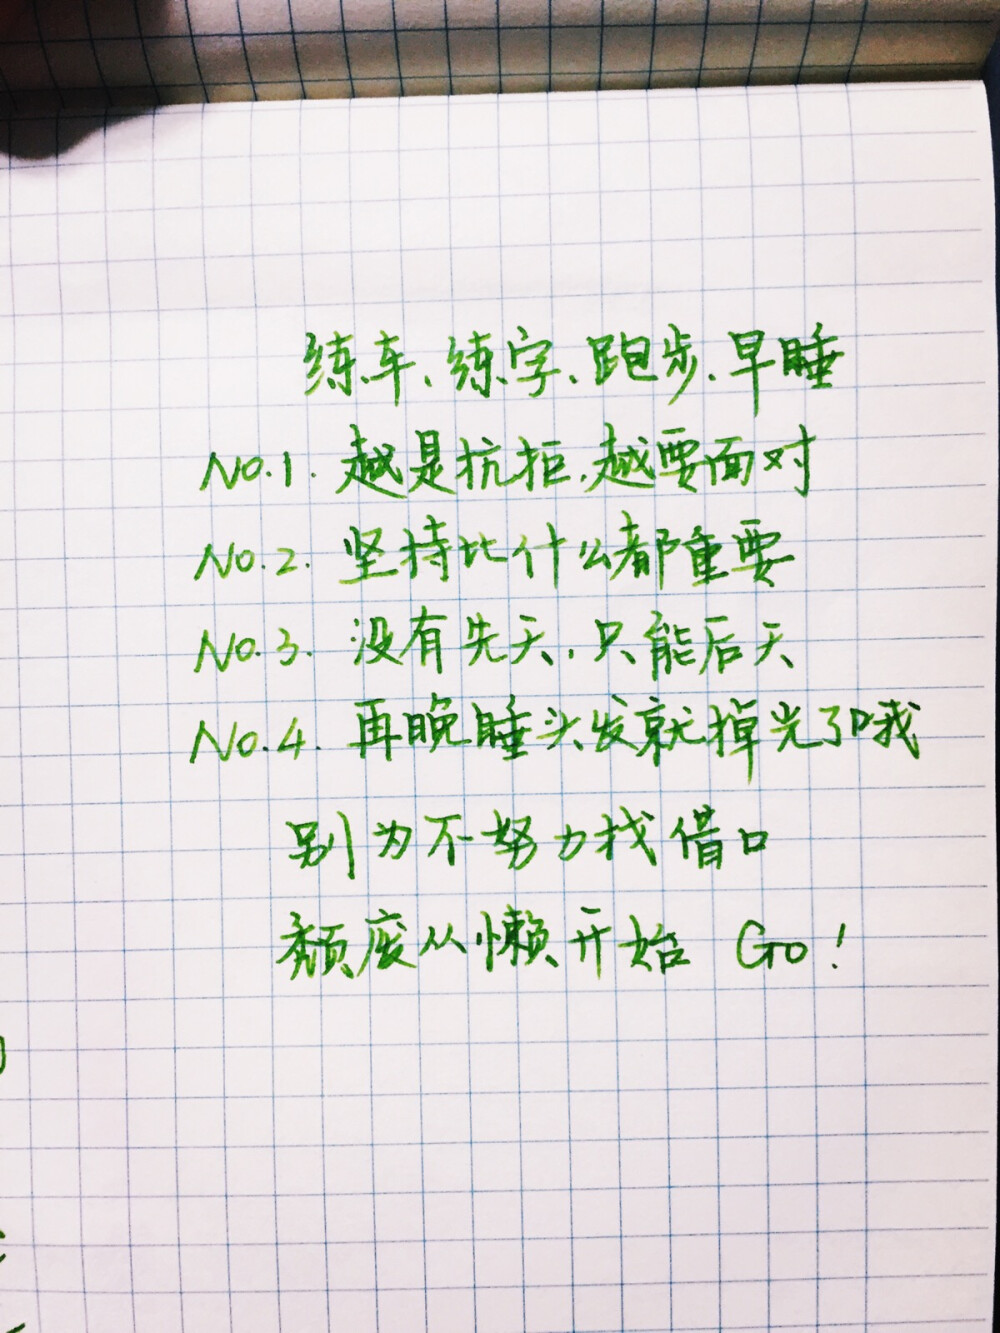 练车、练字、跑步、早睡
No.1. 越是抗拒,越要面对
No.2. 坚持比什么都重要
No.3. 没有先天,只能后天
No.4. 再晚睡头发就掉光了哦
别为不努力找借口
颓废从懒开始 Go!